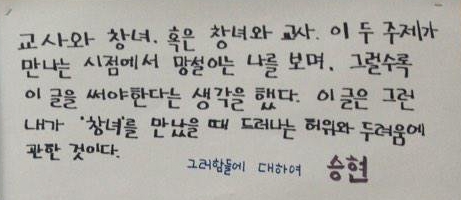 교사와 창녀. 혹은 창녀와 교사. 이 두 주제가
만나는 시점에서 망설이는 나를 보며. 그럴수록
이 글을 써야한다는 생각을 했다. 이 글은 그런
내가 '창녀'를 만났을 때 드러나는 허위와 두려움에
관한 것이다.
그러함들에 대하여 승현